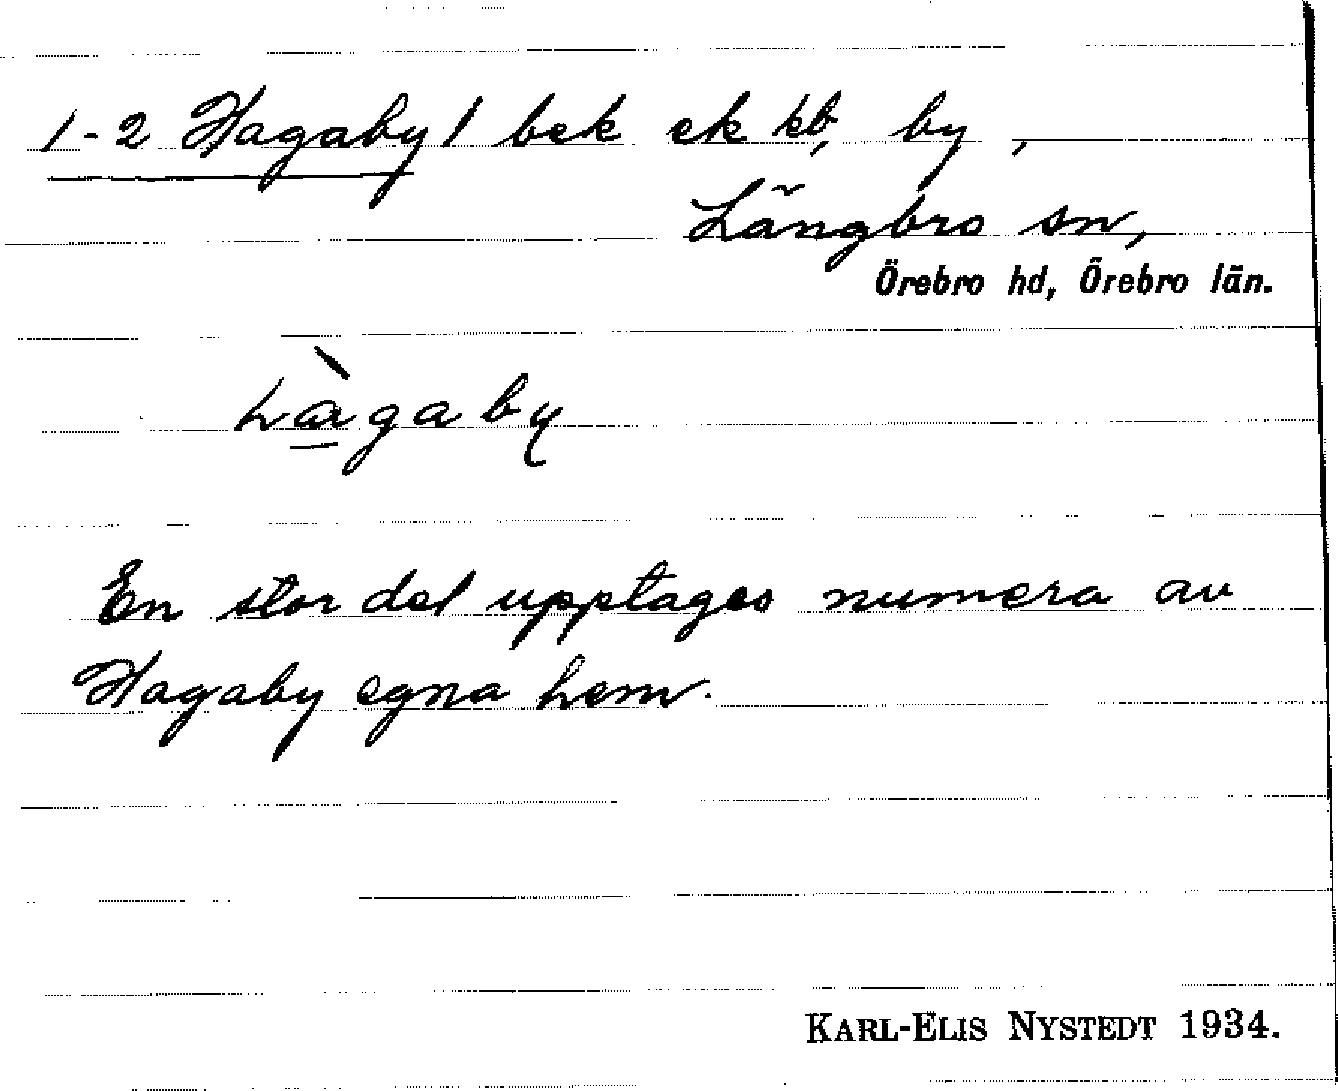 1-2 Hagaby/ bek ek kb, by,
Längbro sn,
Örebro hd, Örebro län.
hàgaby
En stor del upptages numera av
Hagaby egna hem.
KARL-ELIS NYSTEDT 1934.